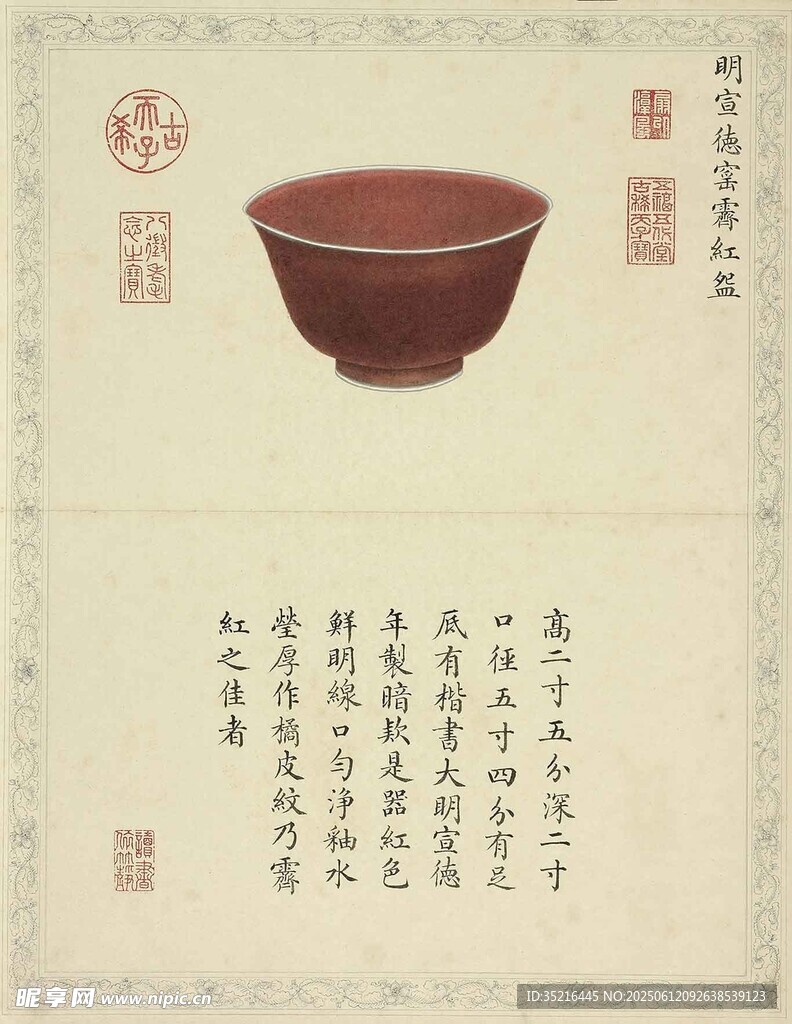 明宣徳窰霽紅盌
五福五代堂
古稀天子寶
古
天子
希
八徵耄
念之寶
髙二寸五分深二寸
口徑五寸四分有足
底有楷書大明宣徳
年製暗欵是器紅色
鮮明線口勻淨釉水
瑩厚作橘皮紋乃霽
紅之佳者
讀書
昵享网 www.nipic.cn
ID:35216445 NO:20250612092638539123